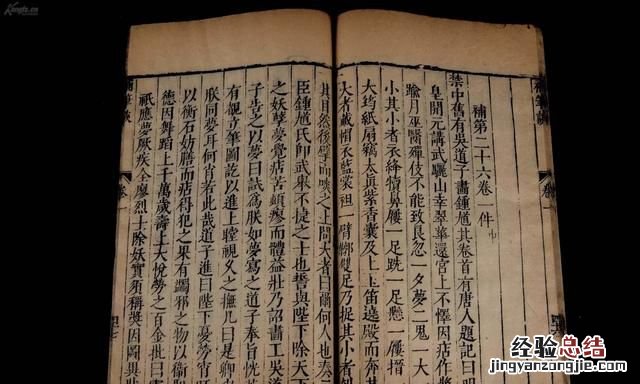 補筆談
卷一
補第二十六卷一件
禁中舊有吳道子畫鍾馗其卷首有唐人題記曰明
皇開元講武驪山幸翠華還宮上不懌因痁作將
踰月巫醫殫伎不能致良忽一夕夢二鬼一大
小其小者衣絳犢鼻屨一足跣一足懸一屨搢
大筠紙扇竊太眞紫香囊及上玉笛遶殿而
大者戴帽衣藍裳袒一臂鞹雙足乃捉其小者
其目然後擘而啖之上問大者曰爾何人
臣鍾馗氏卽武舉不捷之士也誓與陛下除天下
之妖孽夢覺痁苦頓瘳而體益壯乃詔畫工吳
子告之以夢曰試爲朕如夢寫之道子奉旨
有覩立筆圖訖以進上瞠視久之撫几曰是卿
朕同夢耳何肖若此哉道子進曰陛下憂勞宵
以衡石妨膳而痁得犯之果有蠲邪之物以衛
德因舞蹈上千萬歲壽上大悅勞之百金批曰靈
祇應夢厥疾全瘳烈士除妖實須稱奬因圖異
補筆談
卷一
经验总结
www.xianshuwang.com